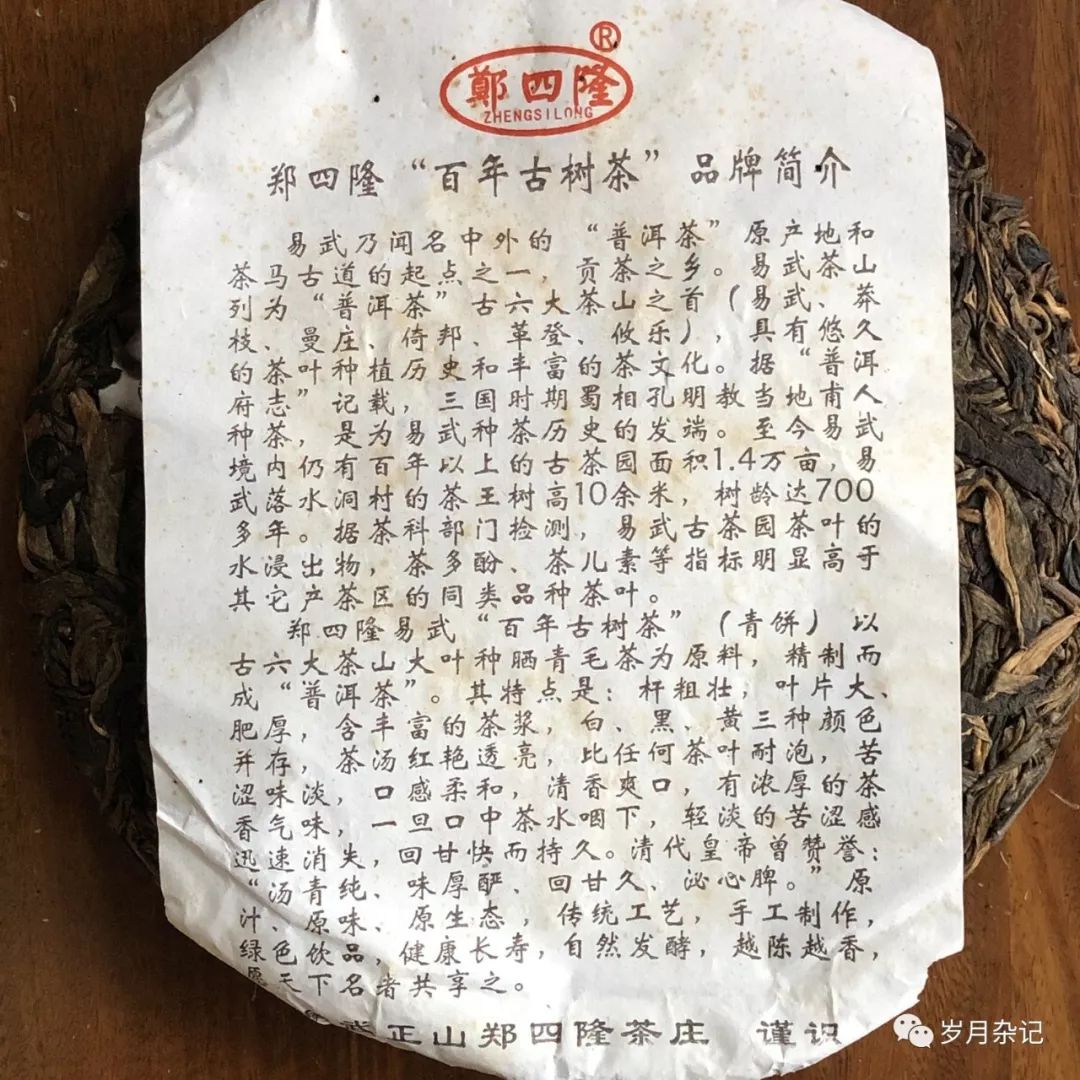 ®
鄭四隆
ZHENGSILONG
郑四隆“百年古树茶”品牌简介
易武乃闻名中外的“普洱茶”原产地和
茶马古道的起点之一，贡茶之乡。易武茶山
列为“普洱茶”古六大茶山之首（易武、莽
枝、曼庄、倚邦、革登、攸乐），具有悠久
的茶叶种植历史和丰富的茶文化。据“普洱
府志”记载，三国时期蜀相孔明教当地甫人
种茶，是为易武种茶历史的发端。至今易武
境内仍有百年以上的古茶园面积1.4万亩，易
武落水洞村的茶王树高10余米，树龄达700
多年。据茶科部门检测，易武古茶园茶叶的
水浸出物，茶多酚、茶儿素等指标明显高于
其它产茶区的同类品种茶叶。
郑四隆易武“百年古树茶”（青饼）以
古六大茶山大叶种晒青毛茶为原料，精制而
成“普洱茶”。其特点是：杆粗壮，叶片大、
肥厚，含丰富的茶浆，白、黑、黄三种颜色
并存，茶汤红艳透亮，比任何茶叶耐泡，苦
涩味淡，口感柔和，清香爽口，有浓厚的茶
香气味，一旦口中茶水咽下，轻淡的苦涩感
迅速消失，回甘快而持久。清代皇帝曾赞誉：
“汤青纯、味厚酽、回甘久、泌心脾。”原
汁、原味、原生态，传统工艺，手工制作，
绿色饮品，健康长寿，自然发酵，越陈越香，
愿天下名者共享之。
正山郑四隆茶庄 谨识
岁月杂记